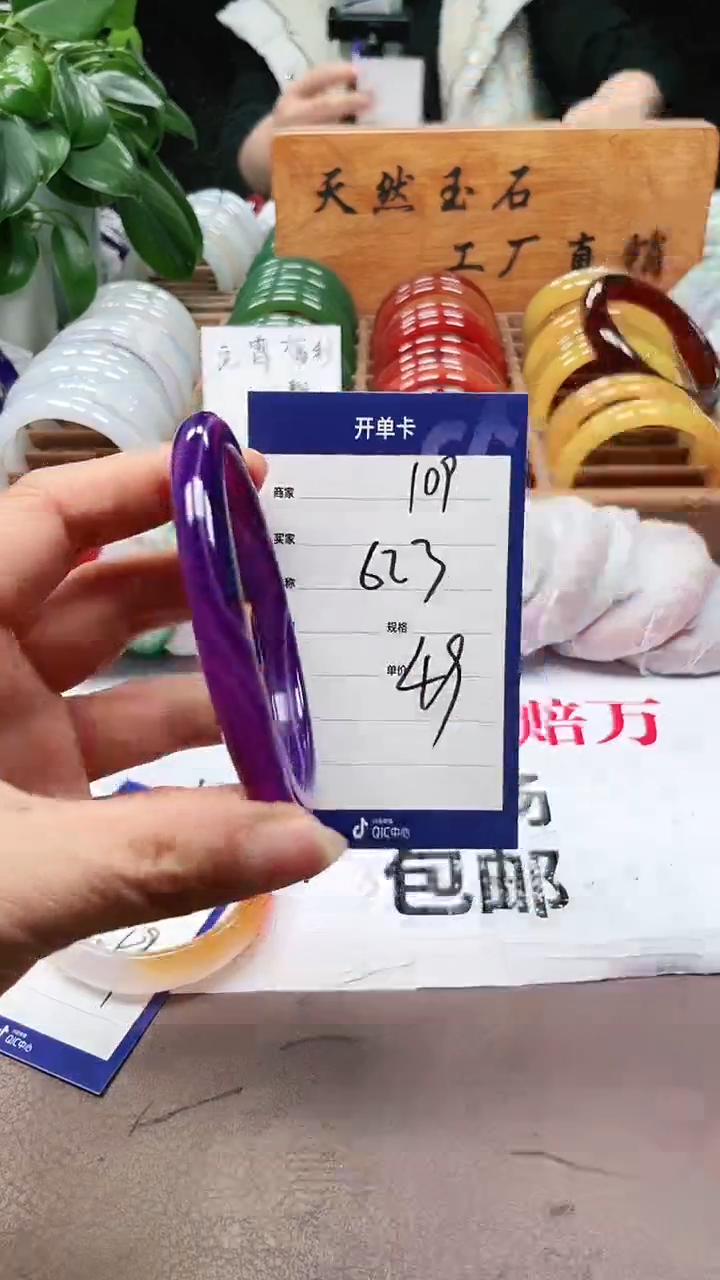 天然玉石
工厂直销
元宵福利
开单卡
商家 109
买家 623
称
规格
单价 49
QIC中心
赔万
包邮
QIC中心